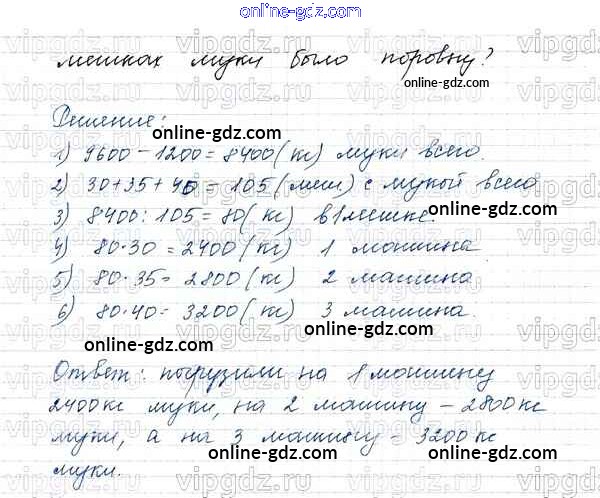 online-gdz.com
мешках муки было поровну?
online-gdz.com
Решение:
online-gdz.com
1) 9600 - 1200 = 8400 (кг) муки всего.
online-gdz.com
2) 30 + 35 + 40 = 105 (меш) с мукой всего
3) 8400 : 105 = 80 (кг) в 1 мешке.
online-gdz.com
4) 80 · 30 = 2400 (кг) 1 машина
online-gdz.com
5) 80 · 35 = 2800 (кг) 2 машина
6) 80 · 40 = 3200 (кг) 3 машина.
online-gdz.com
online-gdz.com
Ответ: погрузили на 1 машину
online-gdz.com
2400 кг муки, на 2 машину - 2800 кг
online-gdz.com
муки, а на 3 машину - 3200 кг
online-gdz.com
муки.
online-gdz.com